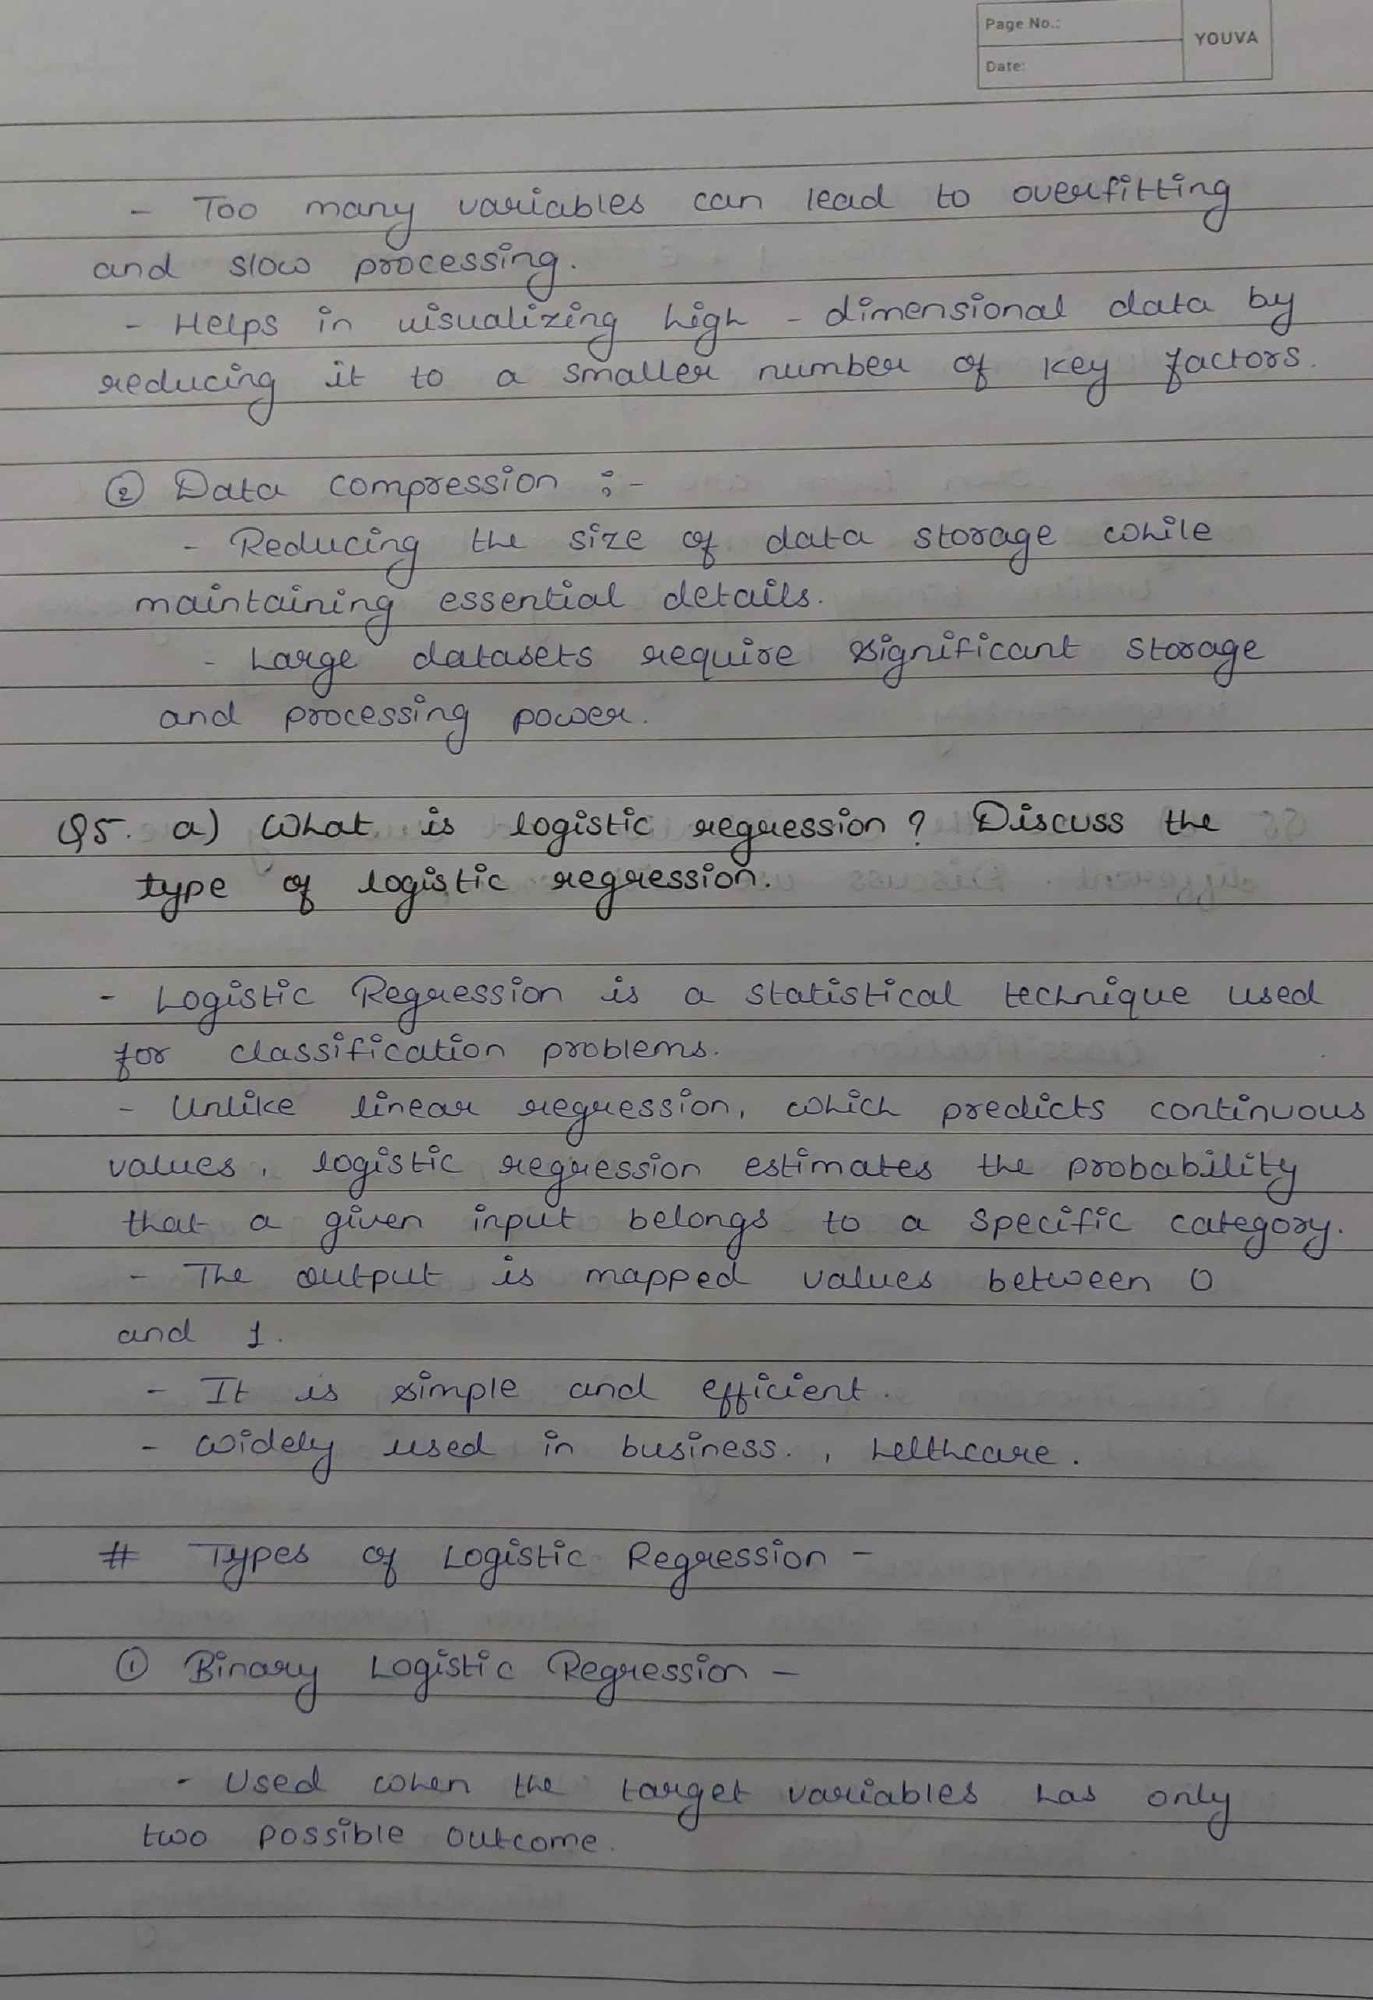 Page No.:
YOUVA
Date:
- Too many variables can lead to overfitting
and slow processing.
- Helps in visualizing high - dimensional data by
reducing it to a smaller number of key factors.
② Data compression :-
- Reducing the size of data storage while
maintaining essential details.
- Large datasets require significant storage
and processing power.
Q5. a) What is logistic regression? Discuss the
type of logistic regression.
- Logistic Regression is a statistical technique used
for classification problems.
- Unlike linear regression, which predicts continuous
values, logistic regression estimates the probability
that a given input belongs to a specific category.
- The output is mapped values between 0
and 1.
- It is simple and efficient.
- Widely used in business. , helthcare.
# Types of Logistic Regression -
① Binary Logistic Regression -
- Used when the target variables has only
two possible outcome.